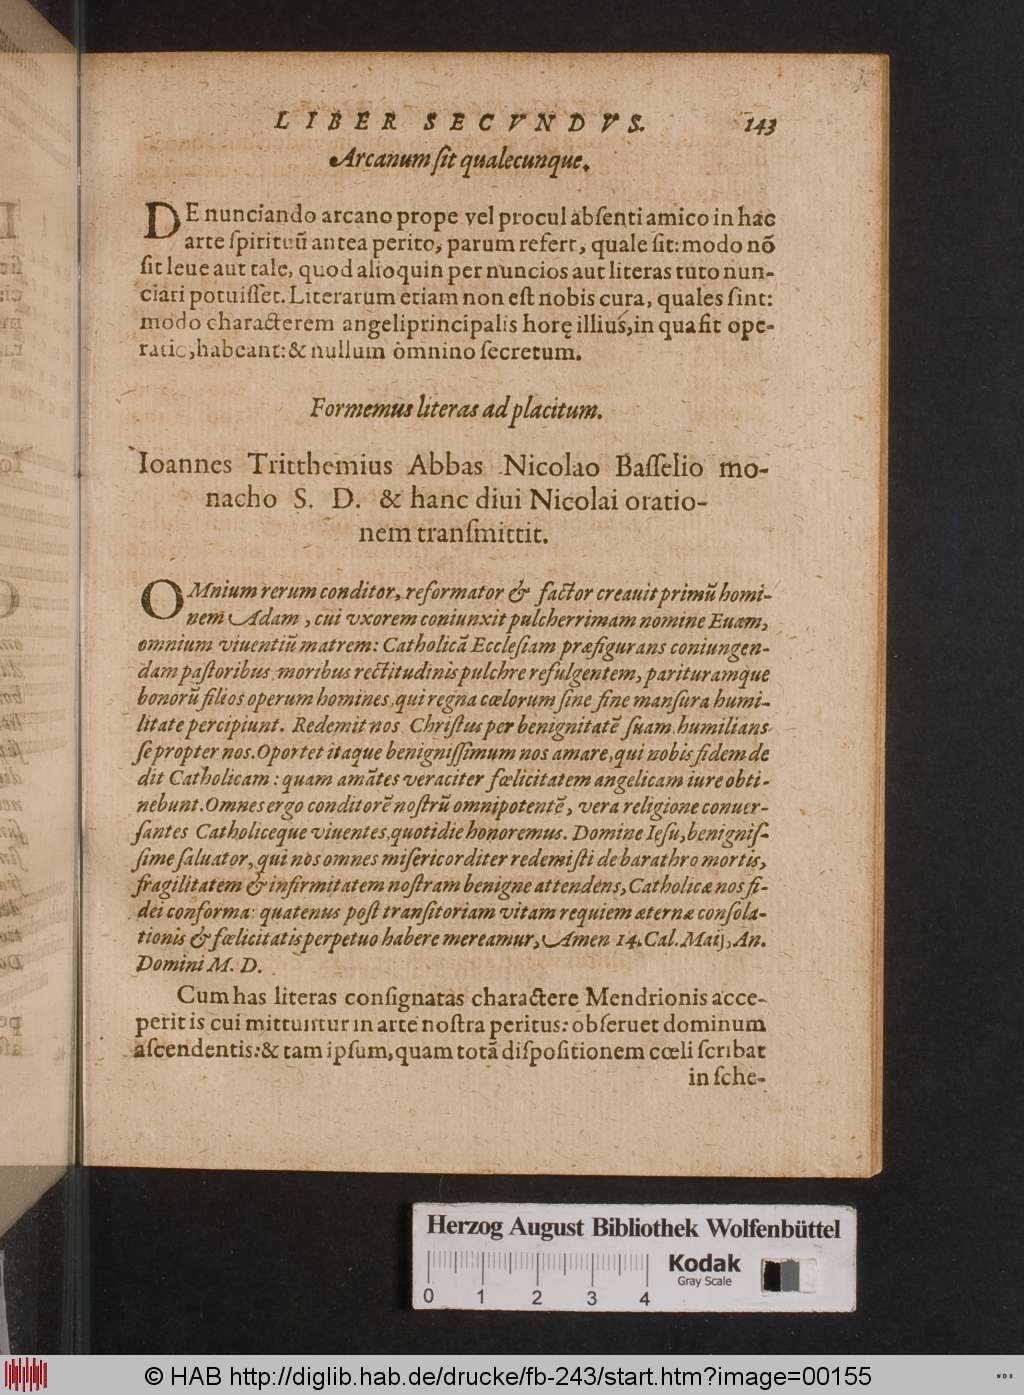 LIBER SECVNDVS. 143
Arcanum ſit qualecunque.
DE nunciando arcano prope vel procul abſenti amico in hac
arte ſpirituũ antea perito, parum refert, quale ſit: modo nõ
ſit leue aut tale, quod alioquin per nuncios aut literas tuto nun-
ciari potuiſſet. Literarum etiam non eſt nobis cura, quales ſint:
modo characterem angeli principalis horę illius, in qua fit ope-
ratio, habeant: & nullum òmnino ſecretum.
Formemus literas ad placitum.
Ioannes Tritthemius Abbas Nicolao Baſſelio mo-
nacho S. D. & hanc diui Nicolai oratio-
nem tranſmittit.
OMnium rerum conditor, reformator & factor creauit primũ homi-
nem Adam, cui vxorem coniunxit pulcherrimam nomine Euam,
omnium viuentiũ matrem: Catholicã Eccleſiam præfigurans coniungen-
dam paſtoribus, moribus rectitudinis pulchre refulgentem, parituramque
bonorũ filios operum homines, qui regna cœlorum ſine fine manſura humi-
litate percipiunt. Redemit nos Chriſtus per benignitatẽ ſuam, humilians
ſe propter nos. Oportet itaque benigniſſimum nos amare, qui nobis fidem de
dit Catholicam: quam amãtes veraciter fœlicitatem angelicam iure obti-
nebunt. Omnes ergo conditorẽ noſtrũ omnipotentẽ, vera religione conuer-
ſantes Catholiceque viuentes, quotidie honoremus. Domine Ieſu, benigniſ-
ſime ſaluator, qui nos omnes miſericorditer redemiſti de barathro mortis,
fragilitatem & infirmitatem noſtram benigne attendens, Catholicæ nos fi-
dei conforma: quatenus poſt tranſitoriam vitam requiem æternæ conſola-
tionis & fœlicitatis perpetuo habere mereamur, Amen 14. Cal. Maij, An.
Domini M. D.
Cum has literas conſignatas charactere Mendrionis acce-
perit is cui mittuntur in arte noſtra peritus: obſeruet dominum
aſcendentis: & tam ipſum, quam totã diſpoſitionem cœli ſcribat
in ſche-
Herzog August Bibliothek Wolfenbüttel
0 1 2 3 4
Kodak
Gray Scale
© HAB http://diglib.hab.de/drucke/fb-243/start.htm?image=00155